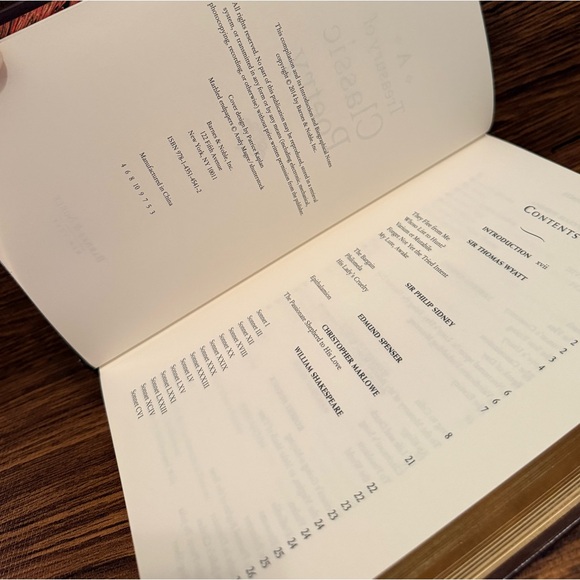 This compilation and its Introduction and Biographical Notes
copyright © 2014 by Barnes & Noble, Inc.
All rights reserved. No part of this publication may be reproduced, stored in a retrieval
system, or transmitted in any form or by any means (including electronic, mechanical,
photocopying, recording, or otherwise) without prior written permission from the publisher.
Cover design by Patrice Kaplan
Marbled endpapers © Andy Magee/shutterstock
Barnes & Noble, Inc.
122 Fifth Avenue
New York, NY 10011
ISBN 978-1-4351-4541-2
Manufactured in China
4 6 8 10 9 7 5 3
A
Treasury of
Classic
Poetry
CONTENTS
INTRODUCTION xvii
SIR THOMAS WYATT
They Flee from Me 2
Whoso List to Hount? 2
Varium et Mutabile 3
Forget Not Yet the Tried Intent 3
My Lute, Awake 4
SIR PHILIP SIDNEY
The Bargain 6
Philomela 6
His Lady's Cruelty 7
EDMUND SPENSER
Epithalamion 8
CHRISTOPHER MARLOWE
The Passionate Shepherd to His Love 21
WILLIAM SHAKESPEARE
Sonnet I 22
Sonnet III 22
Sonnet XII 23
Sonnet XVIII 23
Sonnet XX 24
Sonnet XXIX 24
Sonnet XXX 24
Sonnet XXXIII 25
Sonnet LV 25
Sonnet LXV 26
Sonnet LXXI
Sonnet LXXIII
Sonnet XCIV
Sonnet CVI